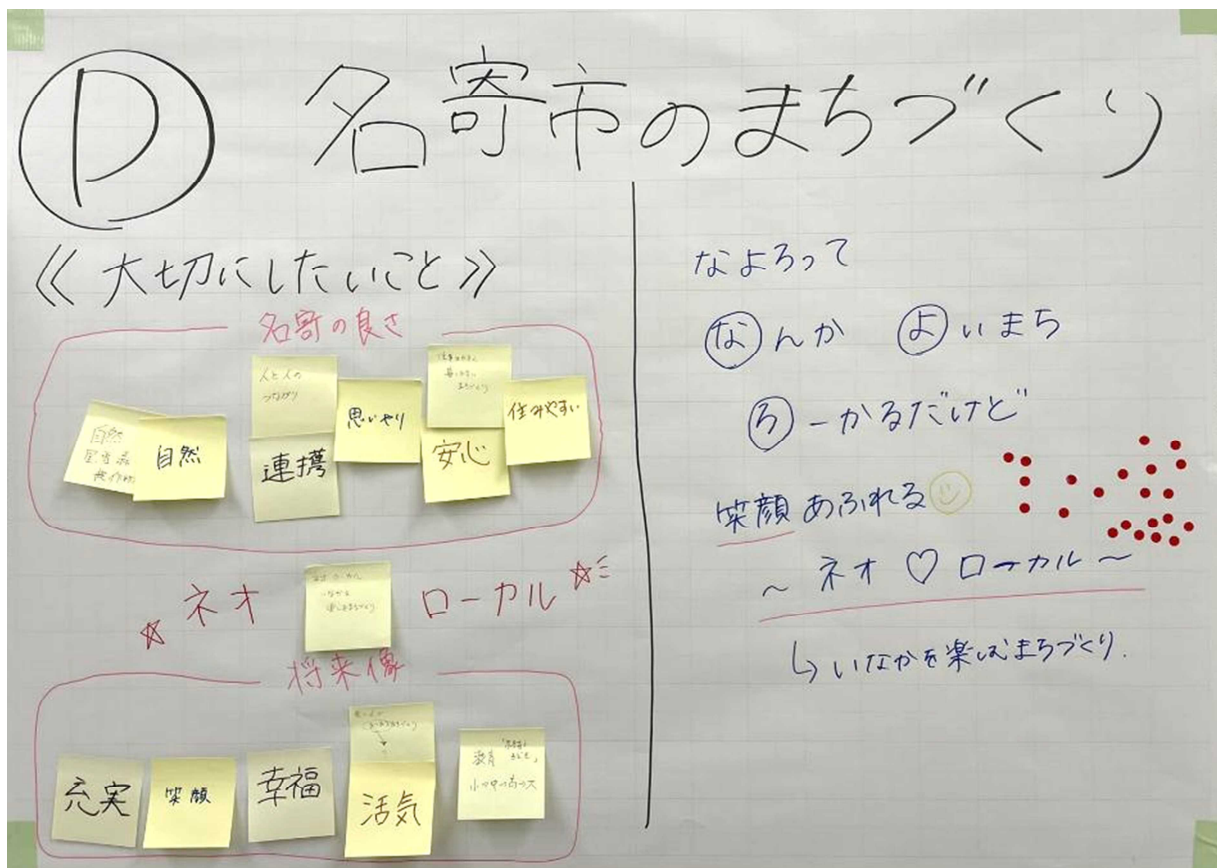 D 名寄市のまちづくり
《大切にしたいこと》
名寄の良さ
自然
自然
人と人の
つながり
連携
思いやり
まちづくり
安心
住みやすい
☆ネオ
ローカル☆
将来像
充実
笑顔
幸福
活気
教育
小→中→高→大
なよろって
なんか よいまち
ろーかるだけど
笑顔あふれる
～ネオ♡ローカル～
↳いなかを楽しむまちづくり.